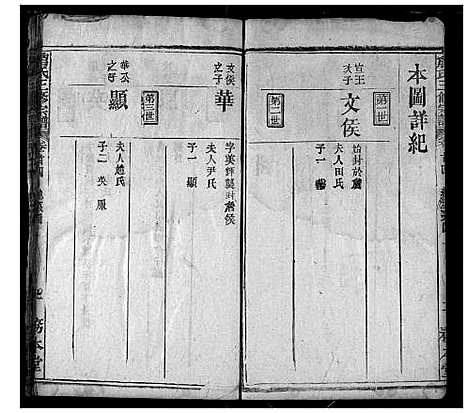 本圖詳紀
第一世
宣王次子
文侯
始封於詹
夫人田氏
子一 華
第二世
文侯之子
華
字英輝襲封詹侯
夫人尹氏
子一 顯
第三世
華公之子
顯
夫人趙氏
子二 英 鳳
務本堂